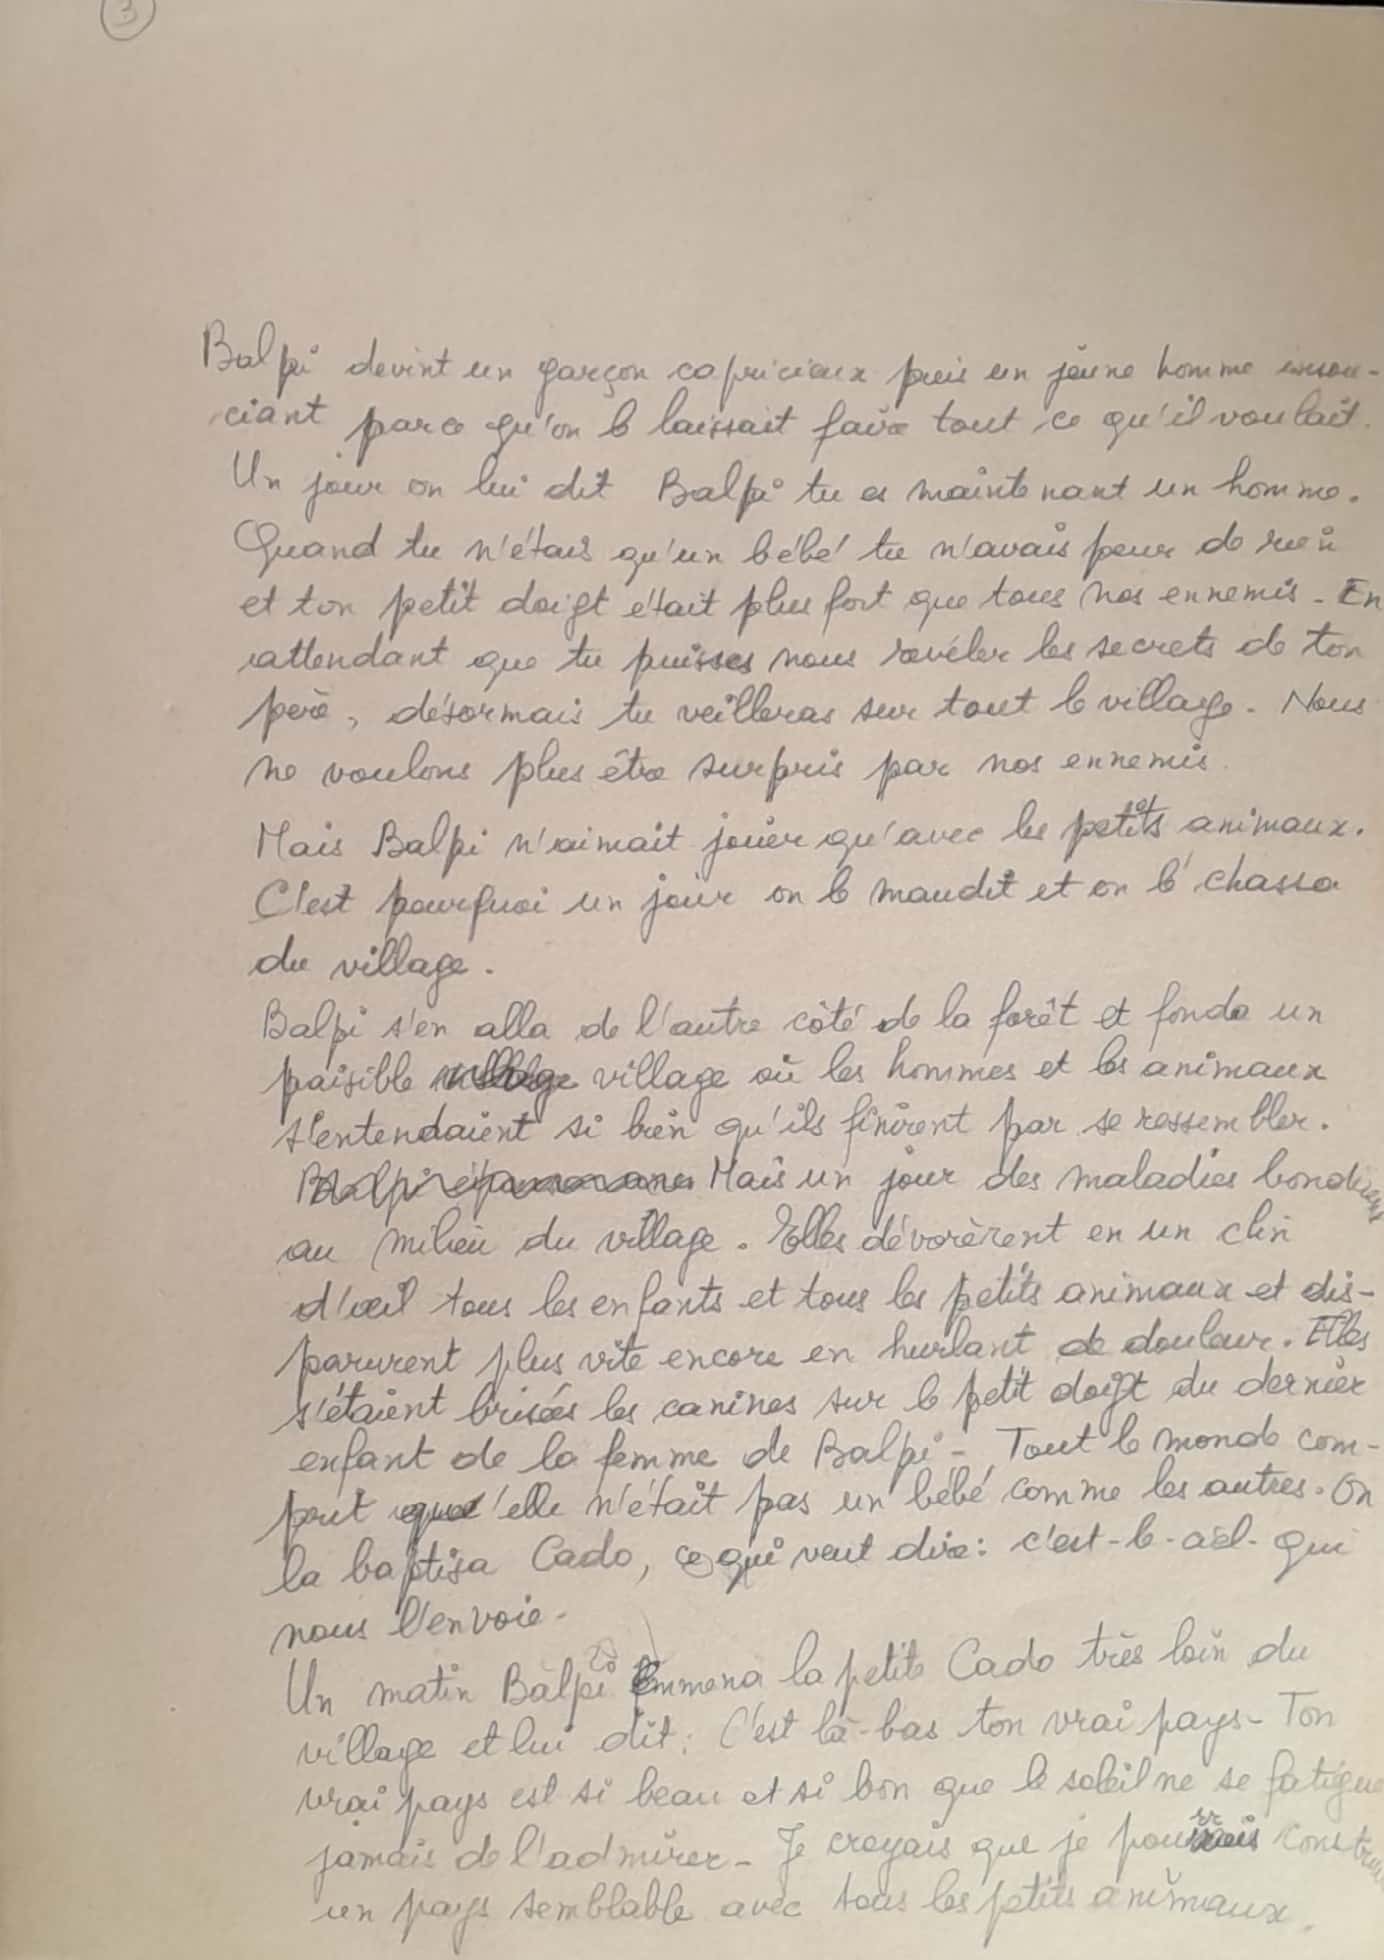 3
Balpi devint un garçon capricieux puis un jeune homme insou-
ciant parce qu'on le laissait faire tout ce qu'il voulait.
Un jour on lui dit Balpi tu es maintenant un homme.
Quand tu n'étais qu'un bébé tu n'avais peur de rien
et ton petit doigt était plus fort que tous nos ennemis - En
attendant que tu puisses nous révéler les secrets de ton
père, désormais tu veilleras sur tout le village - Nous
ne voulons plus être surpris par nos ennemis.
Mais Balpi n'aimait jouer qu'avec les petits animaux.
C'est pourquoi un jour on le maudit et on le chassa
du village.
Balpi s'en alla de l'autre côté de la forêt et fonda un
paisible village village où les hommes et les animaux
s'entendaient si bien qu'ils finirent par se ressembler.
Balpi Mais un jour des maladies bondirent
au milieu du village. Elles dévorèrent en un clin
d'œil tous les enfants et tous les petits animaux et dis-
parurent plus vite encore en hurlant de douleur. Elles
s'étaient brisées les canines sur le petit doigt du dernier
enfant de la femme de Balpi - Tout le monde com-
prit qu'elle n'était pas un bébé comme les autres. On
la baptisa Cado, ce qui veut dire : c'est-le-ciel-qui
nous l'envoie -
Un matin Balpi emmena la petite Cado très loin du
village et lui dit : C'est là-bas ton vrai pays - Ton
vrai pays est si beau et si bon que le soleil ne se fatigue
jamais de l'admirer - Je croyais que je pourrais construire
un pays semblable avec tous les petits animaux.